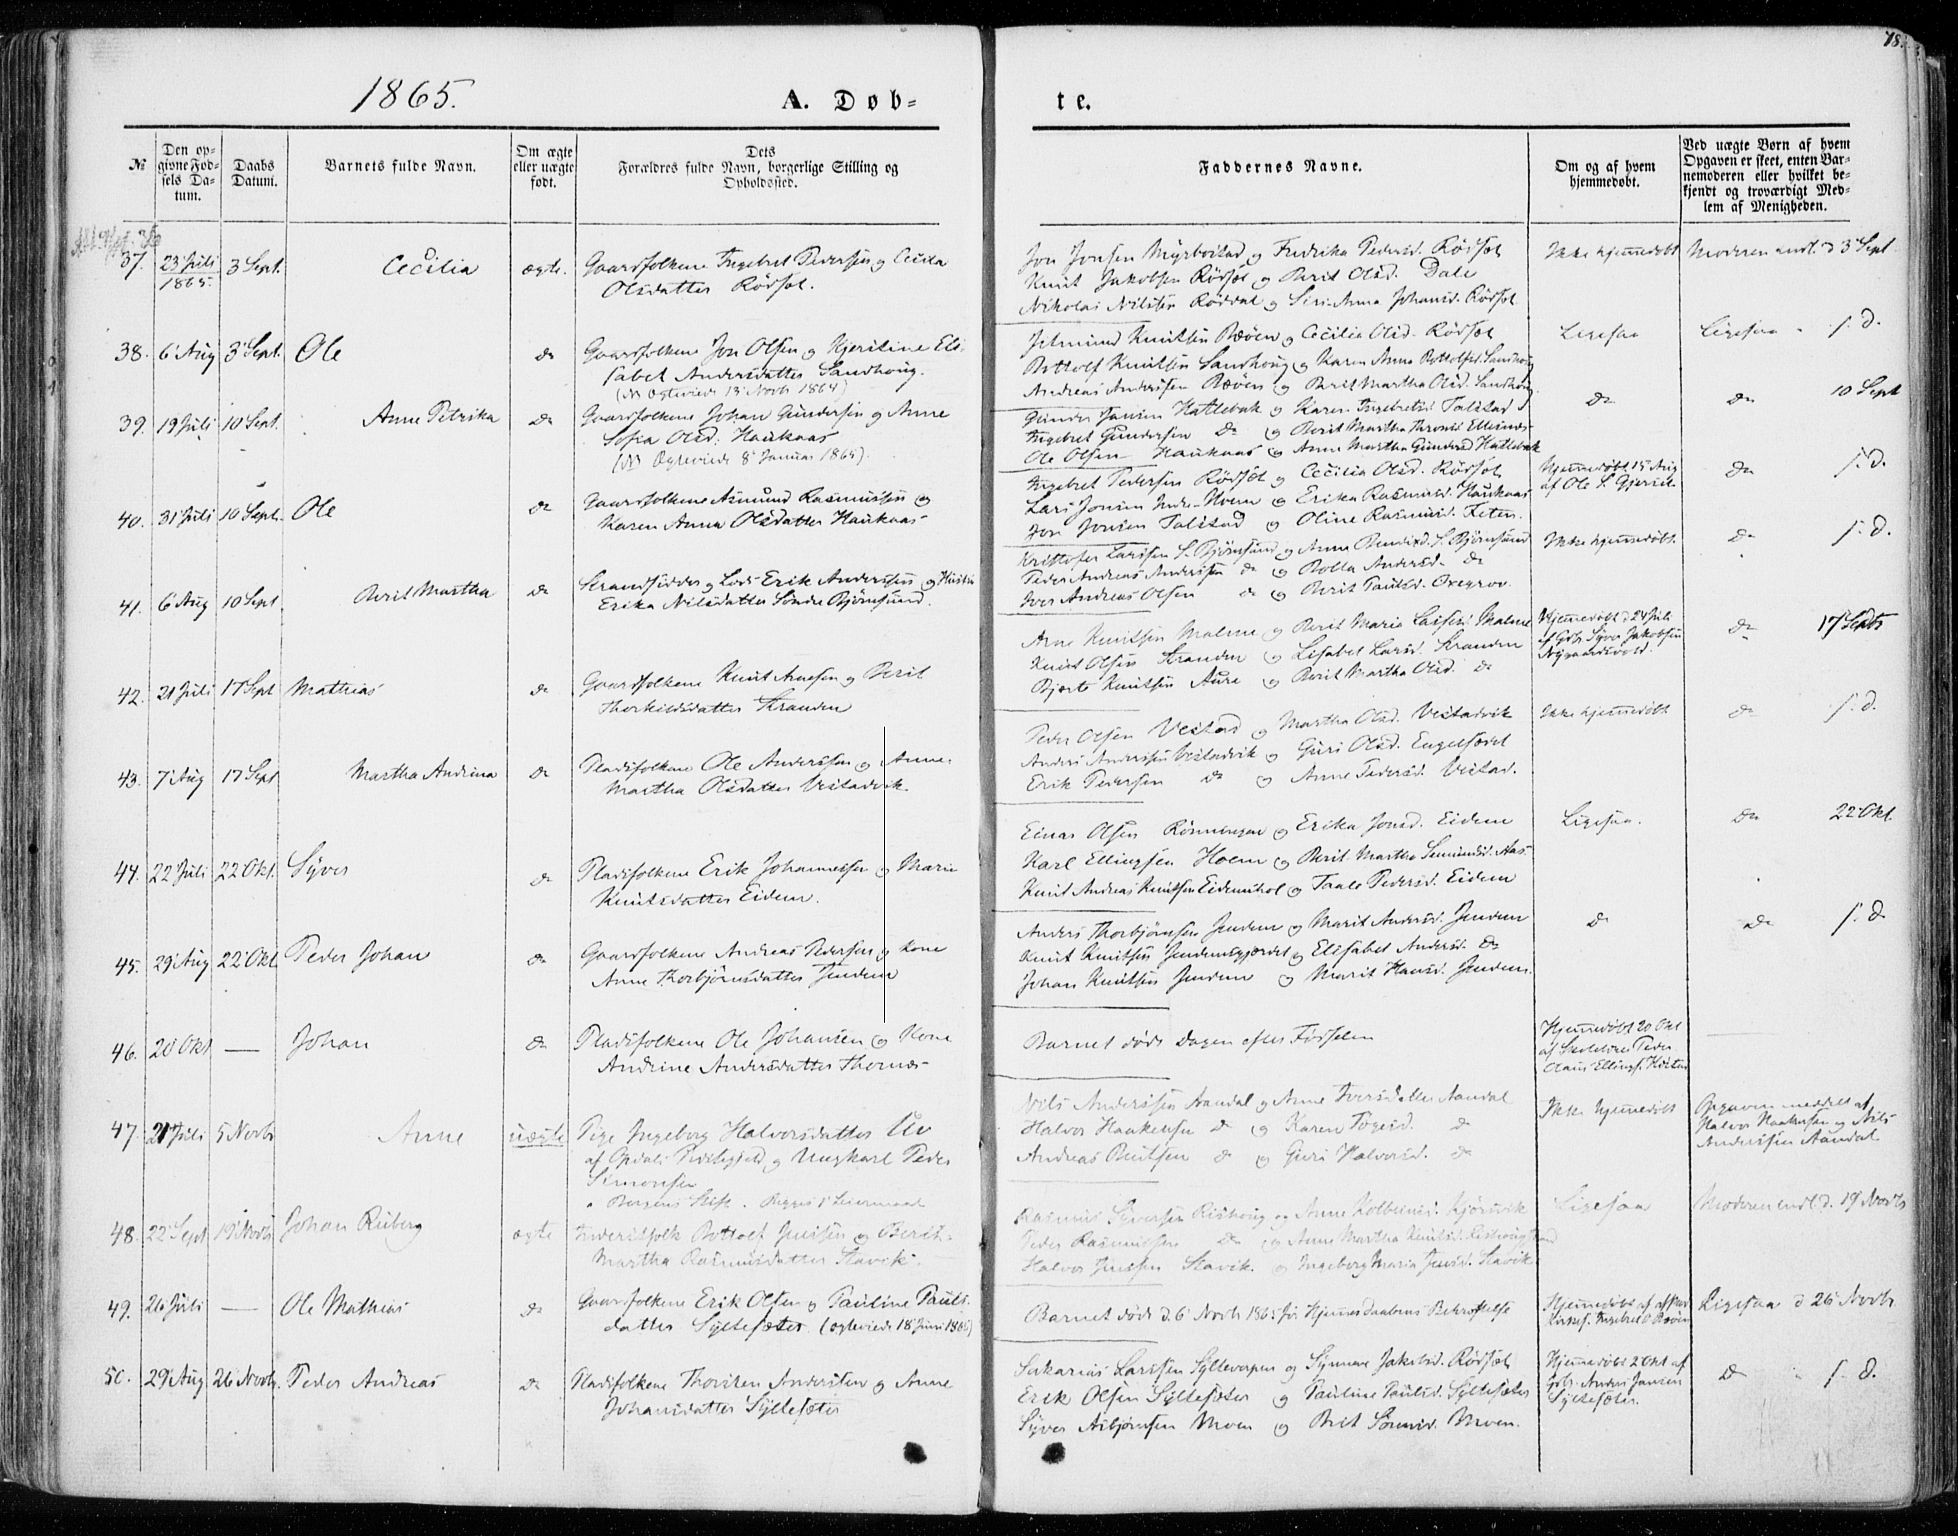 78.
1865.
A. Døb-
te.
№
Den op-
givne Fød-
sels Da-
tum.
Daabs
Datum.
Barnets fulde Navn.
Om ægte
eller uægte
født.
Dets
Forældres fulde Navn, borgerlige Stilling og
Opholdssted.
Faddernes Navne.
Om og af hvem
hjemmedøbt.
Ved uægte Børn af hvem
Opgaven er skeet, enten Bar-
nemoderen eller hvilket be-
kjendt og troværdigt Med-
lem af Menigheden.
37. 23 Juli 1865. 3 Sept. Cecilia ægte. Gaardfolkene Ingebret Pedersen og Cecilia
Olsdatter Rødsøt.
Jon Jonsen Myrbostad og Fredrika Pedersd. Rødsøt
Knut Jakobsen Rødsøt og Berit Olsd. Dale
Nikolai Nilsen Røddal og Siri Anna Johansd. Rødsøt
Ikke hjemmedøbt
Moderen indl. d 3 Sept.
38. 6 Aug 3 Sept. Ole do Gaardfolkene Jon Olsen og Kjerstine Eli-
sabet Andersdatter Sandhoug.
(NB Ægteviede 13 Novb 1864)
Knutsen Bøen og Cecilia Olsd. Rødsøt
Bottolf Knutsen Sandhoug og Karen Anna Bottolfsd. Sandhoug
Andreas Andersen Bøen og Berit Martha Olsd. Sandhoug
Ligesaa
Ligesaa s. d.
39. 19 Juli 10 Sept. Anne Petrika do Gaardfolkene Johan Gundersen og Anne
Sofia Olsd. Haukaas
(NB Ægteviede 8 Januar 1865).
Gunder Jansen Hatlebak og Karen Ingebretsd. Talstad
Ingebret Gundersen do og Berit Martha
Ole Olsen Haukaas og Anne Martha Gundersd Hatlebak
do
do 10 Sept
40. 31 Juli 10 Sept. Ole do Gaardfolkene Asmund Rasmussen og
Karen Anna Olsdatter Haukaas
Ingebret Pedersen Rødsøt og Cecilia Olsd. Rødsøt
Lars Jonsen Indre-Hoem og Erika Rasmusd. Haukaas
Jon Jonsen Talstad og Oline Rasmusd.
Hjemmedøbt 15 Aug
af Ole
do s. d.
41. 6 Aug 10 Sept. Berit Martha do Strandsidder og Lods Erik Andersen og Hustru
Erika Nilsdatter Søndre Bjørnsund.
Kristofer Larsen S. Bjørnsund og Anne S. Bjørnsund
Peder Andreas Andersen do og Andersd. do
Iver Andreas Olsen do og Berit Paulsd.
Ikke hjemmedøbt.
do s. d.
42. 21 Juli 17 Sept Mathias do Gaardfolkene Knut Arnesen og Berit
Thorkildsdatter Stranden
Arne Knutsen Malme og Berit Maria Larsd. Malme
Knut Olsen Stranden og Lisabet Larsd. Stranden
Bjerte Knutsen Aure og Berit Martha Olsd. do
Hjemmedøbt 24 Juli
af Gbr. Syver Jakobsen
Nygaardsvold.
do 17 Septb
43. 7 Aug 17 Sept Martha Andrina do Pladsfolkene Ole Andersen og Anne
Martha Olsdatter Vestadvik.
Peder Olsen Vestad og Martha Olsd. Vestadvik
Anders Andersen Vestadvik og Guri Olsd. Engelsædet
Erik Pedersen do og Anne Pedersd. Vestad.
Ikke hjemmedøbt
do s. d.
44. 22 Juli 22 Okt. Syver do Pladsfolkene Erik Johannesen og Marie
Knutsdatter Eidem.
Einar Olsen Rønningen og Erika Jonsd. Eidem
Karl Ellingsen Hoem og Berit Martha
Knut Andreas Knutsen Eidemshol og Pedersd. Eidem
Ligesaa.
do 22 Okt
45. 29 Aug 22 Okt Peder Johan do Gaardfolkene Andreas Pedersen og Kone
Anne Thorbjørnsdatter Jendem
Anders Thorbjørnsen Jendem og Marit Andersd. Jendem
Knut Knutsen Jendemsgjerdet og Elisabet Andersd. do
Johan Knutsen Jendem og Marit Hansd. Jendem.
do
do s. d
46. 20 Okt — Johan do Pladsfolkene Ole Johansen og Kone
Andrine Andersdatter Thornes
Barnet døde Dagen efter Fødselen
Hjemmedøbt 20 Okt
af Skolelærer Peder
Claus Ellingsen
47. 21 Juli 5 Novb Anne uægte Pige Ingeborg Halvorsdatter
af Opdals Præstegjeld og Ungkarl Peder
Simonsen
Nils Andersen Aandal og Anne Iversdatter Aandal
Halvor Haakensen do og Karen do
Andreas do og Guri Halvorsd. do
Ikke hjemmedøbt
Opgaven meddelt af
Halvor Haakensen og Nils
Andersen Aandal
48. 22 Sept 19 Novb Johan Ruberg ægte Inderstfolk Bottolf Jensen og Berit
Martha Rasmusdatter Stavik.
Rasmus Syversen Rishoug og Anne Kolbeinsd. Kjørsvik
Peder Rasmussen do og Anne Martha Knutsd.
Halvor Jensen Stavik. og Ingeborg Maria Jensd. Stavik
Ligesaa
Moderen indl d. 19 Novb
49. 26 Juli — Ole Mathias do Gaardfolkene Erik Olsen og Pauline Pauls-
datter Syltesæter (Ægteviede 18 Juni 1865)
Barnet døde d. 6 Novb 1865 før Hjemmedaabens Bekræftelse
Ligesaa d 26 Novb
50. 29 Aug 26 Novb. Peder Andreas do Pladsfolkene Thorsten Andersen og Anne
Johansdatter Syltesæter
Sakarias Larssen og Synneve Jakobsd. Rødsøt
Erik Olsen Syltesæter og Pauline Paulsd. Syltesæter
Syver Asbjørnsen Moen og Brit Moen.
Hjemmedøbt 2 Okt af
Gbr. Anders Jansen
Syltesæter.
do s. d.